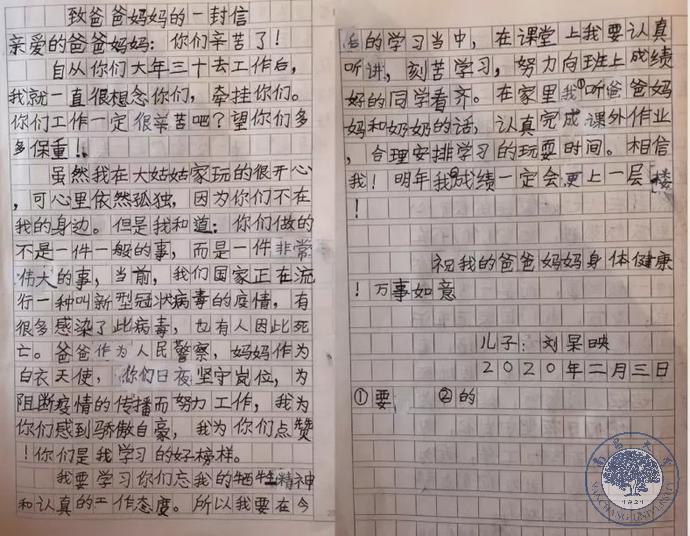 致爸爸妈妈的一封信
亲爱的爸爸妈妈：你们辛苦了！
自从你们大年三十去工作后，
我就一直很想念你们，牵挂你们。
你们工作一定很辛苦吧？望你们多
多保重！
虽然我在大姑姑家玩的很开心
，可心里依然孤独，因为你们不在
我的身边。但是我和道：你们做的
不是一件一般的事，而是一件非常
伟大的事，当前，我们国家正在流
行一种叫新型冠状病毒的疫情，有
很多感染了此病毒，也有人因此死
亡。爸爸作为人民警察，妈妈作为
白衣天使，你们日夜坚守岗位，为
阻断疫情的传播而努力工作，我为
你们感到骄傲自豪，我为你们点赞
！你们是我学习的好榜样。
我要学习你们忘我的牺牲精神
和认真的工作态度。所以我要在今
后的学习当中，在课堂上我要认真
听讲，刻苦学习，努力向班上成绩
好的同学看齐。在家里我①听爸爸妈
妈和奶奶的话，认真完成课外作业
，合理安排学习的玩耍时间。相信
我！明年我②成绩一定会更上一层楼
！
祝我的爸爸妈妈身体健康
！万事如意
儿子：刘杲映
2020年二月三日
①要 ②的
南昌大学
NANCHANG UNIVERSITY